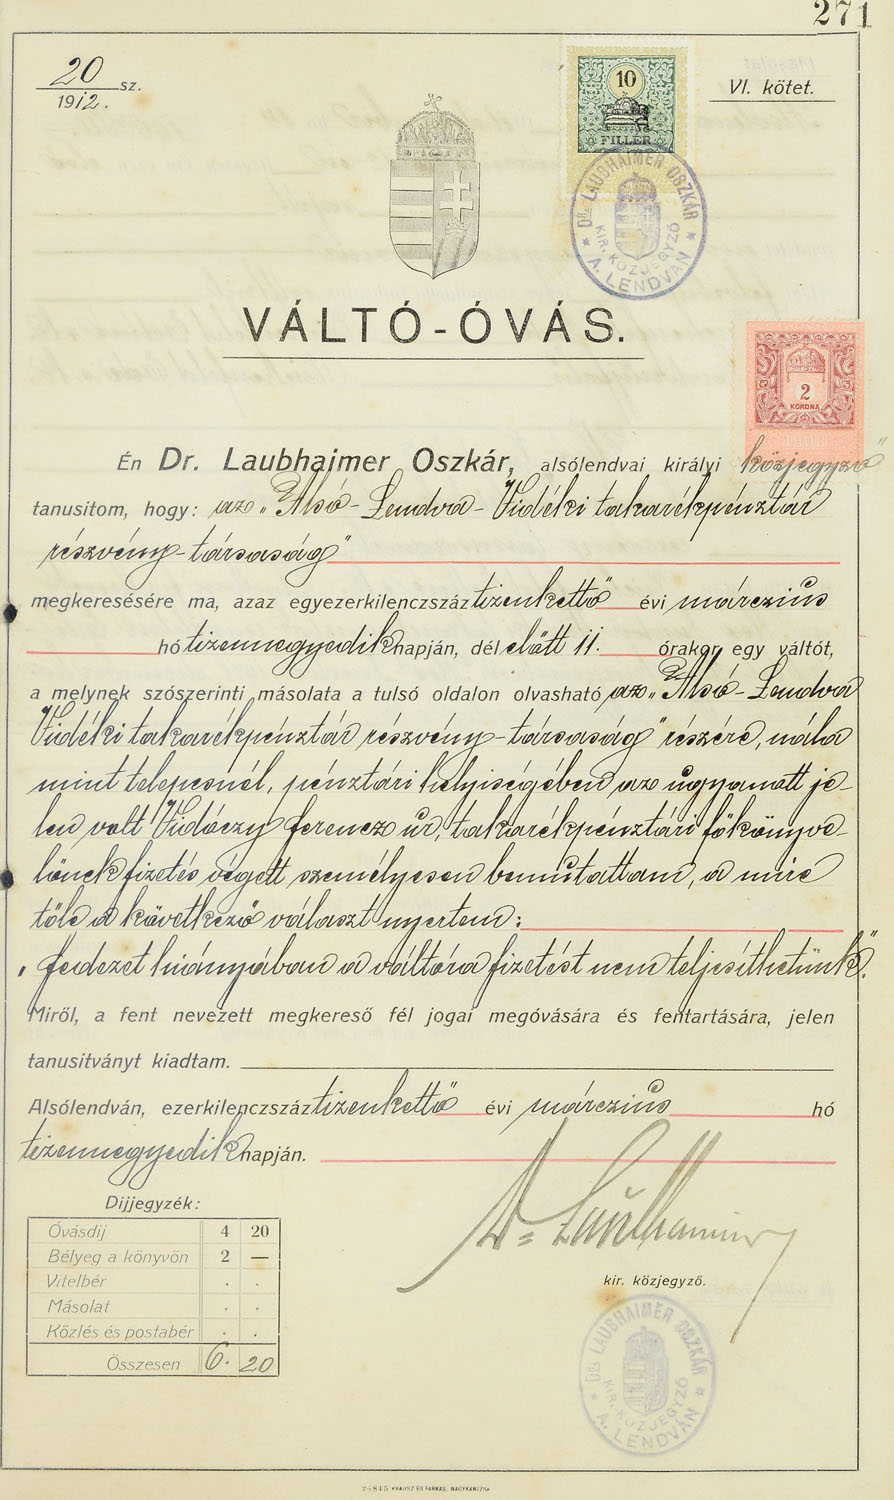 271
20 sz.
1912.
VI. kötet.
10
FILLÉR
DR. LAUBHAIMER OSZKÁR
KIR. KÖZJEGYZŐ
* A. LENDVÁN *
VÁLTÓ-ÓVÁS.
2
KORONA
Én Dr. Laubhaimer Oszkár, alsólendvai királyi közjegyző
tanusitom, hogy: az „Alsó-Lendva-Vidéki takarékpénztár
részvény-társaság"
megkeresésére ma, azaz egyezerkilenczszáz tizenkettő évi márczius
hó tizennegyedik napján, dél előtt 11. órakor egy váltót,
a melynek szószerinti másolata a tulsó oldalon olvasható az „Alsó-Lendva
Vidéki takarékpénztár részvény-társaság" részére, nála
mint telepesnél, pénztári helyiségében az ugyanott je-
len volt Vidóczy Ferencz ur, takarékpénztári főkönyve-
lőnek fizetés végett személyesen bemutattam, a mire
tőle a következő választ nyertem:
„fedezet hiányában a váltóra fizetést nem teljesíthetünk".
Miről, a fent nevezett megkereső fél jogai megóvására és fentartására, jelen
tanusitványt kiadtam.
Alsólendván, ezerkilenczszáz tizenkettő évi márczius hó
tizennegyedik napján.
Dijjegyzék:
Óvásdij 4 20
Bélyeg a könyvön 2 —
Vitelbér . .
Másolat . .
Közlés és postabér . .
Összesen 6. 20
Dr Laubhaimer
kir. közjegyző.
DR. LAUBHAIMER OSZKÁR
KIR. KÖZJEGYZŐ
* A. LENDVÁN *
24845 KRAUSZ ÉS FARKAS, NAGYKANIZSA